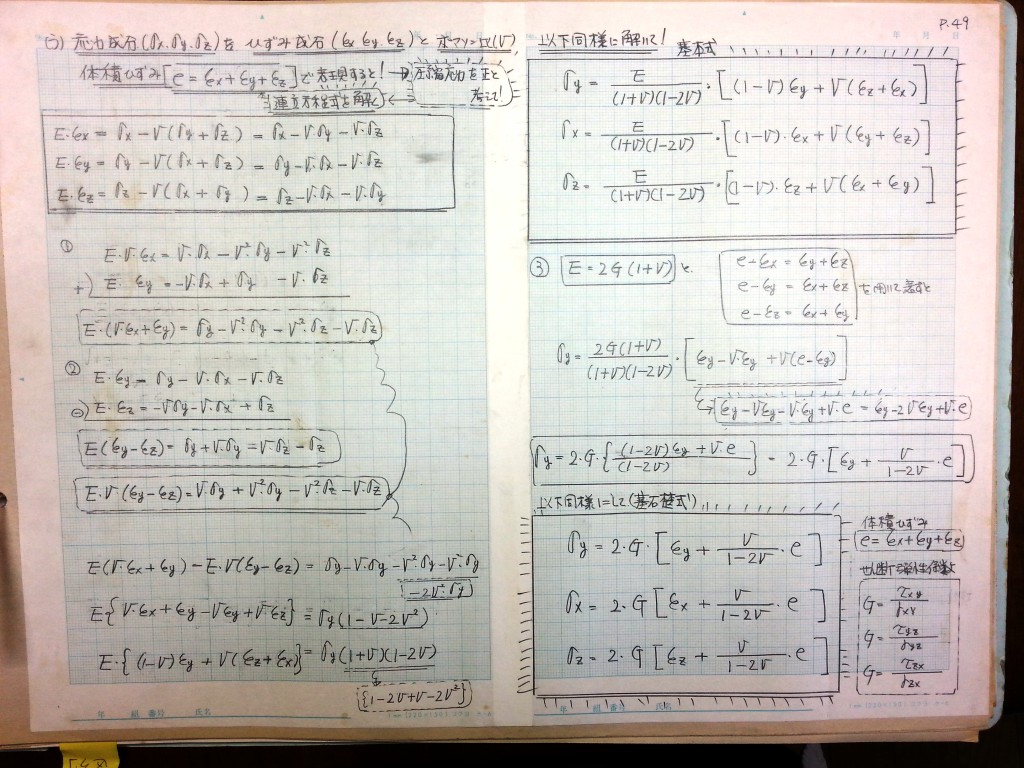 P.49
応力成分(σx.σy.σz)を ひずみ成分(εx εy.εz)と ポアソン比(ν)
体積ひずみ[e=εx+εy+εz]で表現すると!
圧縮応力を正と
考えて!
連立方程式を解く
E・εx = σx-ν(σy+σz) = σx-ν・σy-ν・σz
E・εy = σy-ν(σx+σz) = σy-ν・σx-ν・σz
E・εz = σz-ν(σx+σy) = σz-ν・σx-ν・σy
①
E・ν・εx = ν・σx-ν²・σy-ν²・σz
+) E・εy = -ν・σx+σy -ν・σz
E・(ν・εx+εy) = σy-ν²・σy-ν²・σz-ν・σz
②
E・εy = σy-ν・σx-ν・σz
⊖) E・εz = -νσy-ν・σx+σz
E(εy-εz) = σy+ν・σy=ν・σz-σz
E・ν(εy-εz) = ν・σy+ν²・σy-ν²・σz-ν・σz
E(ν・εx+εy)-E・ν(εy-εz) = σy-ν・σy-ν²・σy-ν²・σy
-2ν²・σy
E{ν・εx+εy-νεy+ν・εz} = σy(1-ν-2ν²)
E・{(1-ν)εy+ν(εz+εx)} = σy(1+ν)(1-2ν)
{1-2ν+ν-2ν²}
年 組 番号 氏名
以下同様に解いて!
基本式
年 月 日
σy = E/(1+ν)(1-2ν)・[(1-ν)εy+ν(εz+εx)]
σx = E/(1+ν)(1-2ν)・[(1-ν)・εx+ν(εy+εz)]
σz = E/(1+ν)(1-2ν)・[(1-ν)・εz+ν(εx+εy)]
③ E=2G(1+ν) と
e-εx = εy+εz
e-εy = εx+εz を用いて表すと
e-εz = εx+εy
σy = 2G(1+ν)/(1+ν)(1-2ν)・[εy-ν・εy+ν(e-εy)]
εy-νεy-ν・εy+ν・e = εy-2νεy+ν・e
σy = 2・G・{(1-2ν)εy+ν・e/(1-2ν)} = 2・G・[εy+ν/1-2ν・e]
以下同様にして(基礎式)
σy = 2・G・[εy+ν/1-2ν・e]
σx = 2・G[εx+ν/1-2ν・e]
σz = 2・G[εz+ν/1-2ν・e]
体積ひずみ
e=εx+εy+εz
せん断弾性係数
G= τxy/γxy
G= τyz/γyz
G= τzx/γzx
年 組 番号 氏名